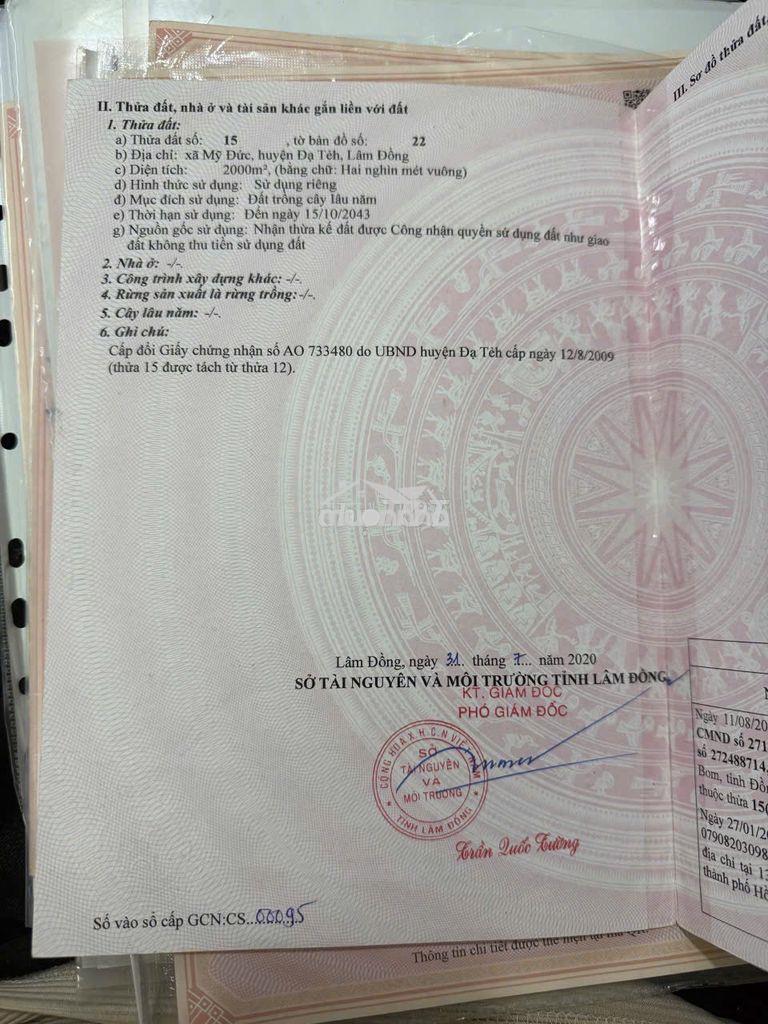 II. Thửa đất, nhà ở và tài sản khác gắn liền với đất
1. Thửa đất:
a) Thửa đất số: 15 , tờ bản đồ số: 22
b) Địa chỉ: xã Mỹ Đức, huyện Đạ Tẻh, Lâm Đồng
c) Diện tích: 2000m², (bằng chữ: Hai nghìn mét vuông)
d) Hình thức sử dụng: Sử dụng riêng
đ) Mục đích sử dụng: Đất trồng cây lâu năm
e) Thời hạn sử dụng: Đến ngày 15/10/2043
g) Nguồn gốc sử dụng: Nhận thừa kế đất được Công nhận quyền sử dụng đất như giao
đất không thu tiền sử dụng đất
2. Nhà ở: -/-.
3. Công trình xây dựng khác: -/-.
4. Rừng sản xuất là rừng trồng: -/-.
5. Cây lâu năm: -/-.
6. Ghi chú:
Cấp đổi Giấy chứng nhận số AO 733480 do UBND huyện Đạ Tẻh cấp ngày 12/8/2009
(thửa 15 được tách từ thửa 12).
Lâm Đồng, ngày 31 tháng 7 năm 2020
SỞ TÀI NGUYÊN VÀ MÔI TRƯỜNG TỈNH LÂM ĐỒNG
KT. GIÁM ĐỐC
PHÓ GIÁM ĐỐC
CỘNG HÒA X.H.C.N VIỆT NAM
SỞ
TÀI NGUYÊN
VÀ
MÔI TRƯỜNG
TỈNH LÂM ĐỒNG
Trần Quốc Tường
Số vào sổ cấp GCN:CS..00095
III. Sơ đồ thửa đất,
Ngày 11/08/20
CMND số 271
số 272488714,
Bom, tỉnh Đồ
thuộc thửa 15(
Ngày 27/01/20
07908203098
địa chỉ tại 13
thành phố Hồ
Thông tin chi tiết được thể hiện tại mã QR